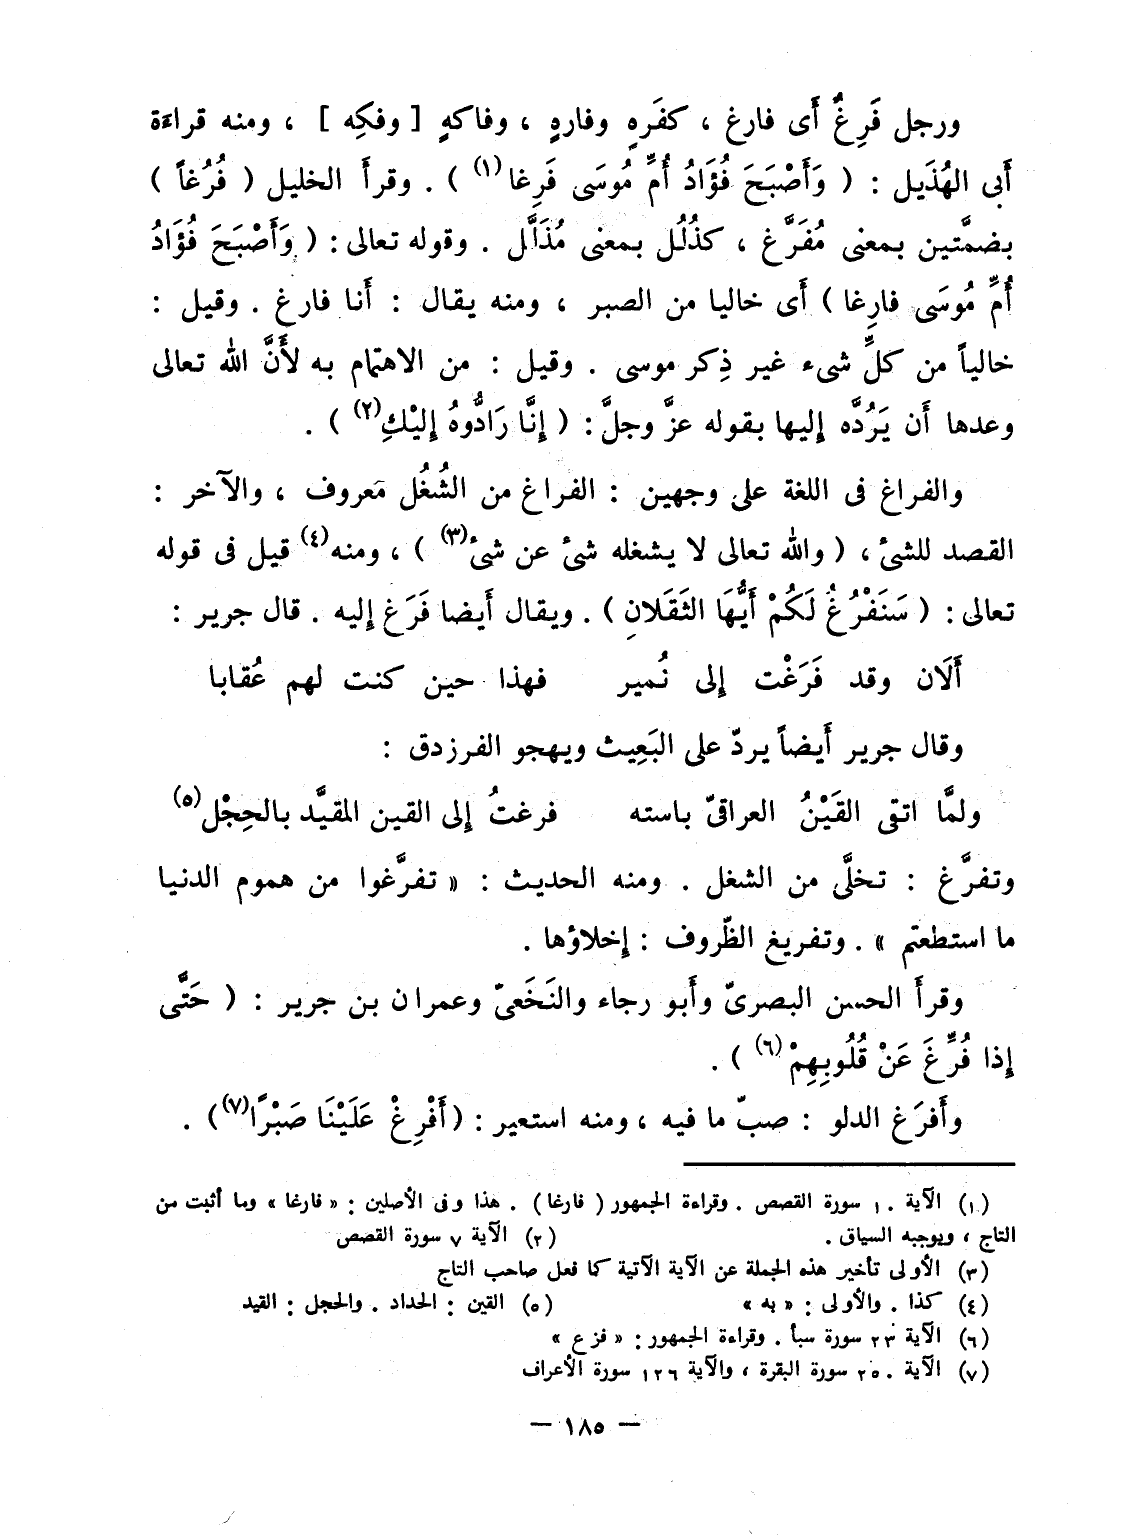 ورجل فَرِغٌ أَى فارغ ، كفَرِهٍ وفارهٍ ، وفاكهٍ [ وفكِه ] ، ومنه قراءة
أَبى الهُذَيل : ( وَأَصْبَحَ فُؤَادُ أُمِّ مُوسَى فَرِغا(١) ) . وقرأَ الخليل ( فُرُغاً )
بضمَّتين بمعنى مُفَرَّغ ، كذُلُل بمعنى مُذَلَّل . وقوله تعالى : ( وَأَصْبَحَ فُؤَادُ
أُمِّ مُوسَى فارِغا ) أَى خاليا من الصبر ، ومنه يقال : أَنا فارغ . وقيل :
خالياً من كلِّ شىء غير ذِكر موسى . وقيل : من الاهتمام به لأَنَّ الله تعالى
وعدها أَن يَرُدَّه إليها بقوله عزَّ وجلَّ : ( إِنَّا رَادُّوهُ إِليْكِ(٢) ) .
والفراغ فى اللغة على وجهين : الفراغ من الشُغُل مَعروف ، والآخر :
القصد للشىٔ ، ( والله تعالى لا يشغله شىٔ عن شىٔ(٣) ) ، ومنه(٤) قيل فى قوله
تعالى : ( سَنَفْرُغُ لَكُمْ أَيُّهَا الثَقَلانِ ) . ويقال أَيضا فَرَغ إليه . قال جرير :
أَلَان وقد فَرَغْت إلى نُمير فهذا حين كنت لهم عُقابا
وقال جرير أَيضاً يردّ على البَعِيث ويهجو الفرزدق :
ولمَّا اتقى القَيْنُ العراقىّ باسته فرغتُ إلى القين المقيَّد بالحِجْل(٥)
وتفرَّغ : تخلَّى من الشغل . ومنه الحديث : « تفرَّغوا من هموم الدنيا
ما استطعتم » . وتفريغ الظّروف : إخلاؤها .
وقرأَ الحسن البصرىّ وأَبو رجاء والنَخَعىّ وعمران بن جرير : ( حَتَّى
إِذا فُرِّغَ عَنْ قُلُوبِهِمْ(٦) ) .
وأَفرَغ الدلو : صبّ ما فيه ، ومنه استعير : ( أَفْرِغْ عَلَيْنَا صَبْرًا(٧) ) .
(١) الآية ١٠ سورة القصص . وقراءة الجمهور ( فارغا ) . هذا وفى الأصلين : « فارغا » وما أثبت من
التاج ، ويوجبه السياق . (٢) الآية ٧ سورة القصص
(٣) الأولى تأخير هذه الجملة عن الآية الآتية كما فعل صاحب التاج
(٤) كذا . والأولى : « به » (٥) القين : الحداد . والحجل : القيد
(٦) الآية ٢٣ سورة سبأ . وقراءة الجمهور : « فزع »
(٧) الآية ٢٥٠ سورة البقرة ، والآية ١٢٦ سورة الأعراف
— ١٨٥ —